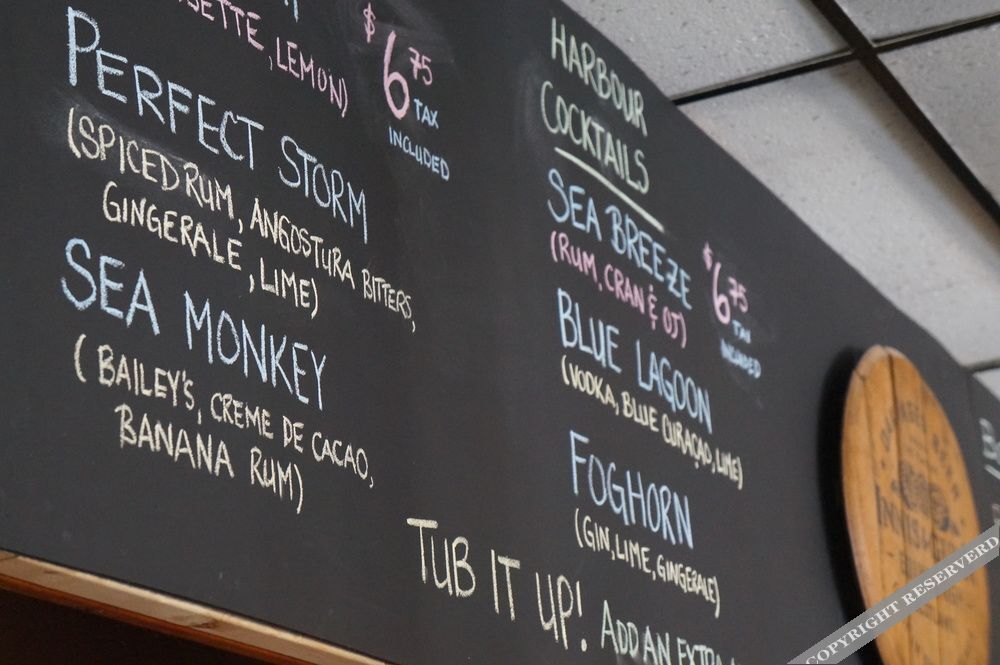 SETTE, LEMON)
$6.75
TAX
INCLUDED
PERFECT STORM
(SPICED RUM, ANGOSTURA BITTERS,
GINGERALE, LIME)
SEA MONKEY
(BAILEY'S, CREME DE CACAO,
BANANA RUM)
HARBOUR
COCKTAILS
SEA BREEZE
(RUM, CRAN & OJ)
$6.75
TAX
INCLUDED
BLUE LAGOON
(VODKA, BLUE CURAÇAO, LIME)
FOGHORN
(GIN, LIME, GINGERALE)
TUB IT UP! ADD AN EXTRA
INNIS &
COPYRIGHT RESERVERD